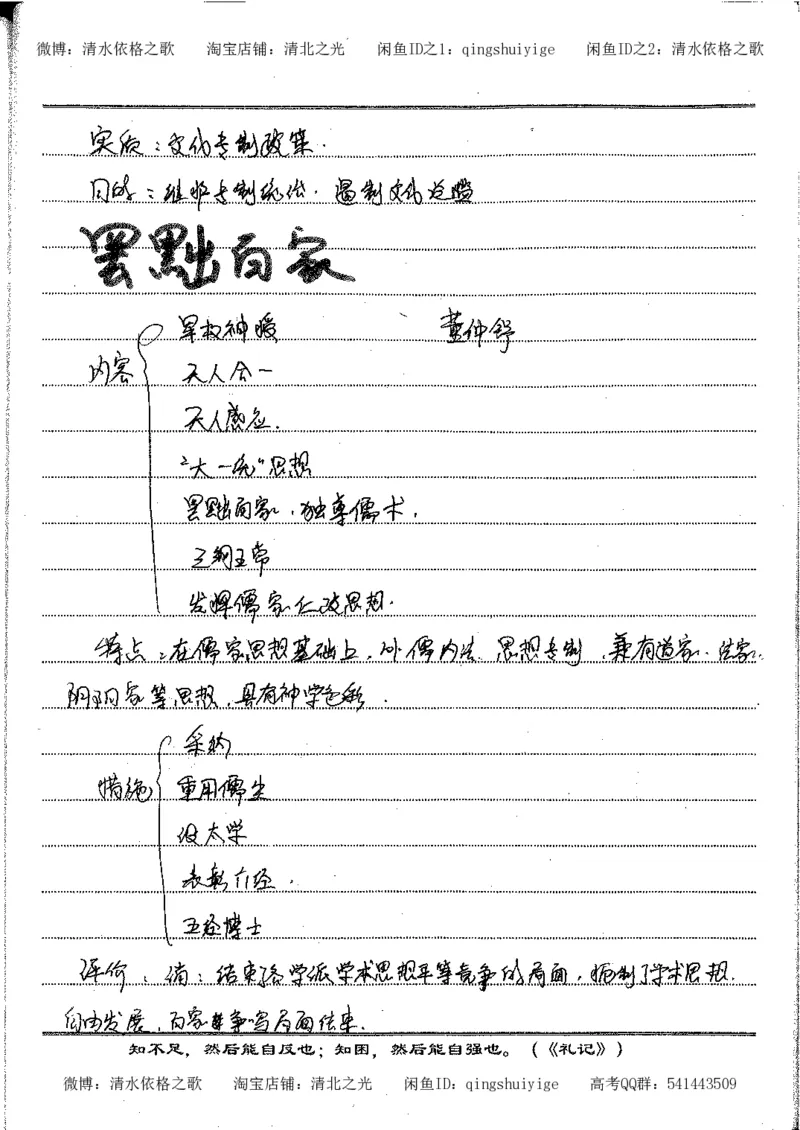 微博：清水依格之歌 淘宝店铺：清北之光 闲鱼ID之1：qingshuiyige 闲鱼ID之2：清水依格之歌
实质：文化专制政策.
目的：维护专制统治.遏制文化泛滥
罢黜百家
君权神授 董仲舒
内容
天人合一
天人感应.
"大一统"思想
罢黜百家,独尊儒术,
三纲五常
发挥儒家仁政思想.
特点:在儒家思想基础上,外儒内法、思想专制,兼有道家、法家、
阴阳家等思想,具有神学色彩.
采纳
措施
重用儒生
设太学
表彰六经.
五经博士
评价:消:结束了各学派学术思想平等竞争的局面,扼制了学术思想.
自由发展,百家争鸣局面结束.
知不足，然后能自反也；知困，然后能自强也。（《礼记》）
微博：清水依格之歌 淘宝店铺：清北之光 闲鱼ID：qingshuiyige 高考QQ群：541443509